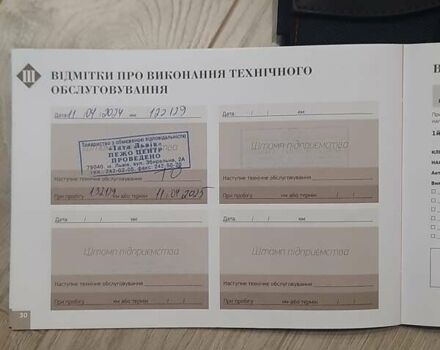 III ВІДМІТКИ ПРО ВИКОНАННЯ ТЕХНІЧНОГО
ОБСЛУГОВУВАННЯ
Дата 11 / 04 / 2024 122129 км
Товариство з обмеженою відповідальністю
«Іатя Львів»
ПЕЖО ЦЕНТР
ПРОВЕДЕНО
79040 м. Львів, вул. Збиральна, 2А
Наступне технічне обслуговування ТО
При пробігу км або термін 11.04.2025
Дата / / км
Штамп підприємства
Наступне технічне обслуговування
При пробігу км або термін / /
Дата / / км
Штамп підприємства
Наступне технічне обслуговування
При пробігу км або термін / /
Дата / / км
Штамп підприємства
Наступне технічне обслуговування
При пробігу км або термін / /
30